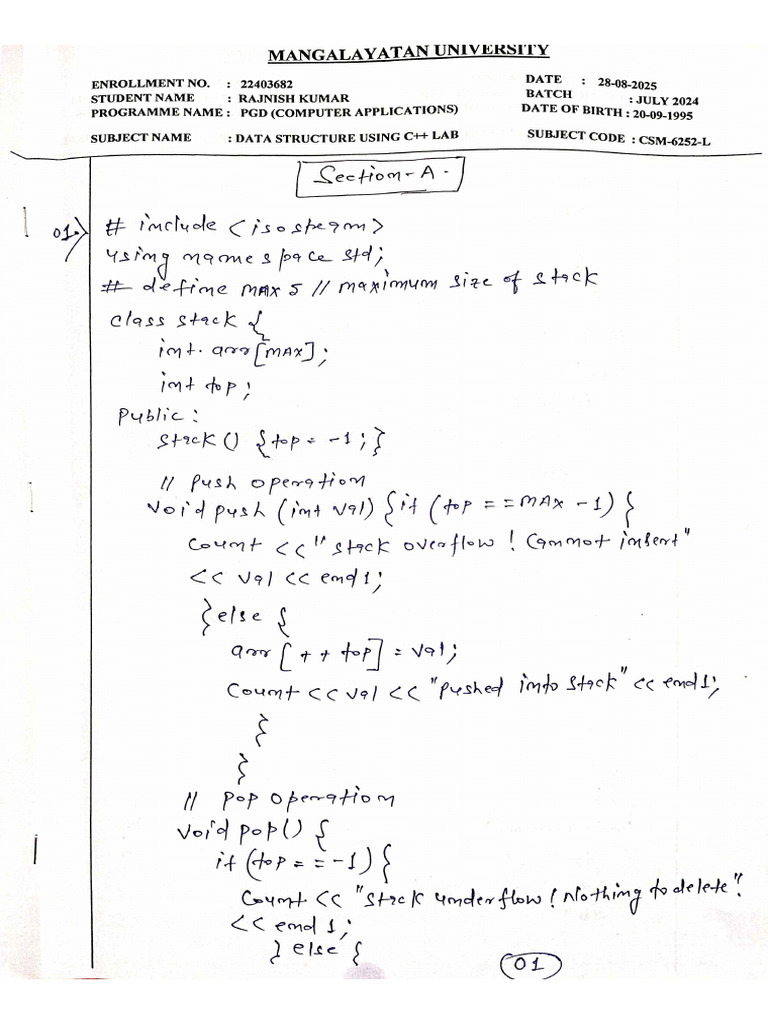 MANGALAYATAN UNIVERSITY
ENROLLMENT NO. : 22403682
DATE : 28-08-2025
STUDENT NAME : RAJNISH KUMAR
BATCH : JULY 2024
PROGRAMME NAME : PGD (COMPUTER APPLICATIONS)
DATE OF BIRTH : 20-09-1995
SUBJECT NAME : DATA STRUCTURE USING C++ LAB
SUBJECT CODE : CSM-6252-L
Section-A.
01.> # include <isosteam>
using name space std;
# define MAX 5 // maximum size of stack
class stack {
int. arr[MAX];
int top;
Public:
stack() {top = -1;}
// Push operation
void push (int val) {if (top == MAX -1) {
Count <<" stack overflow ! Cannot insert"
<< val << end1;
}else {
arr [++top] = val;
Count << val << "pushed into stack" << end1;
}
}
// Pop operation
void pop() {
if (top == -1) {
Count << "stack underflow ! Nothing to delete"
<< end 1;
} else {
01